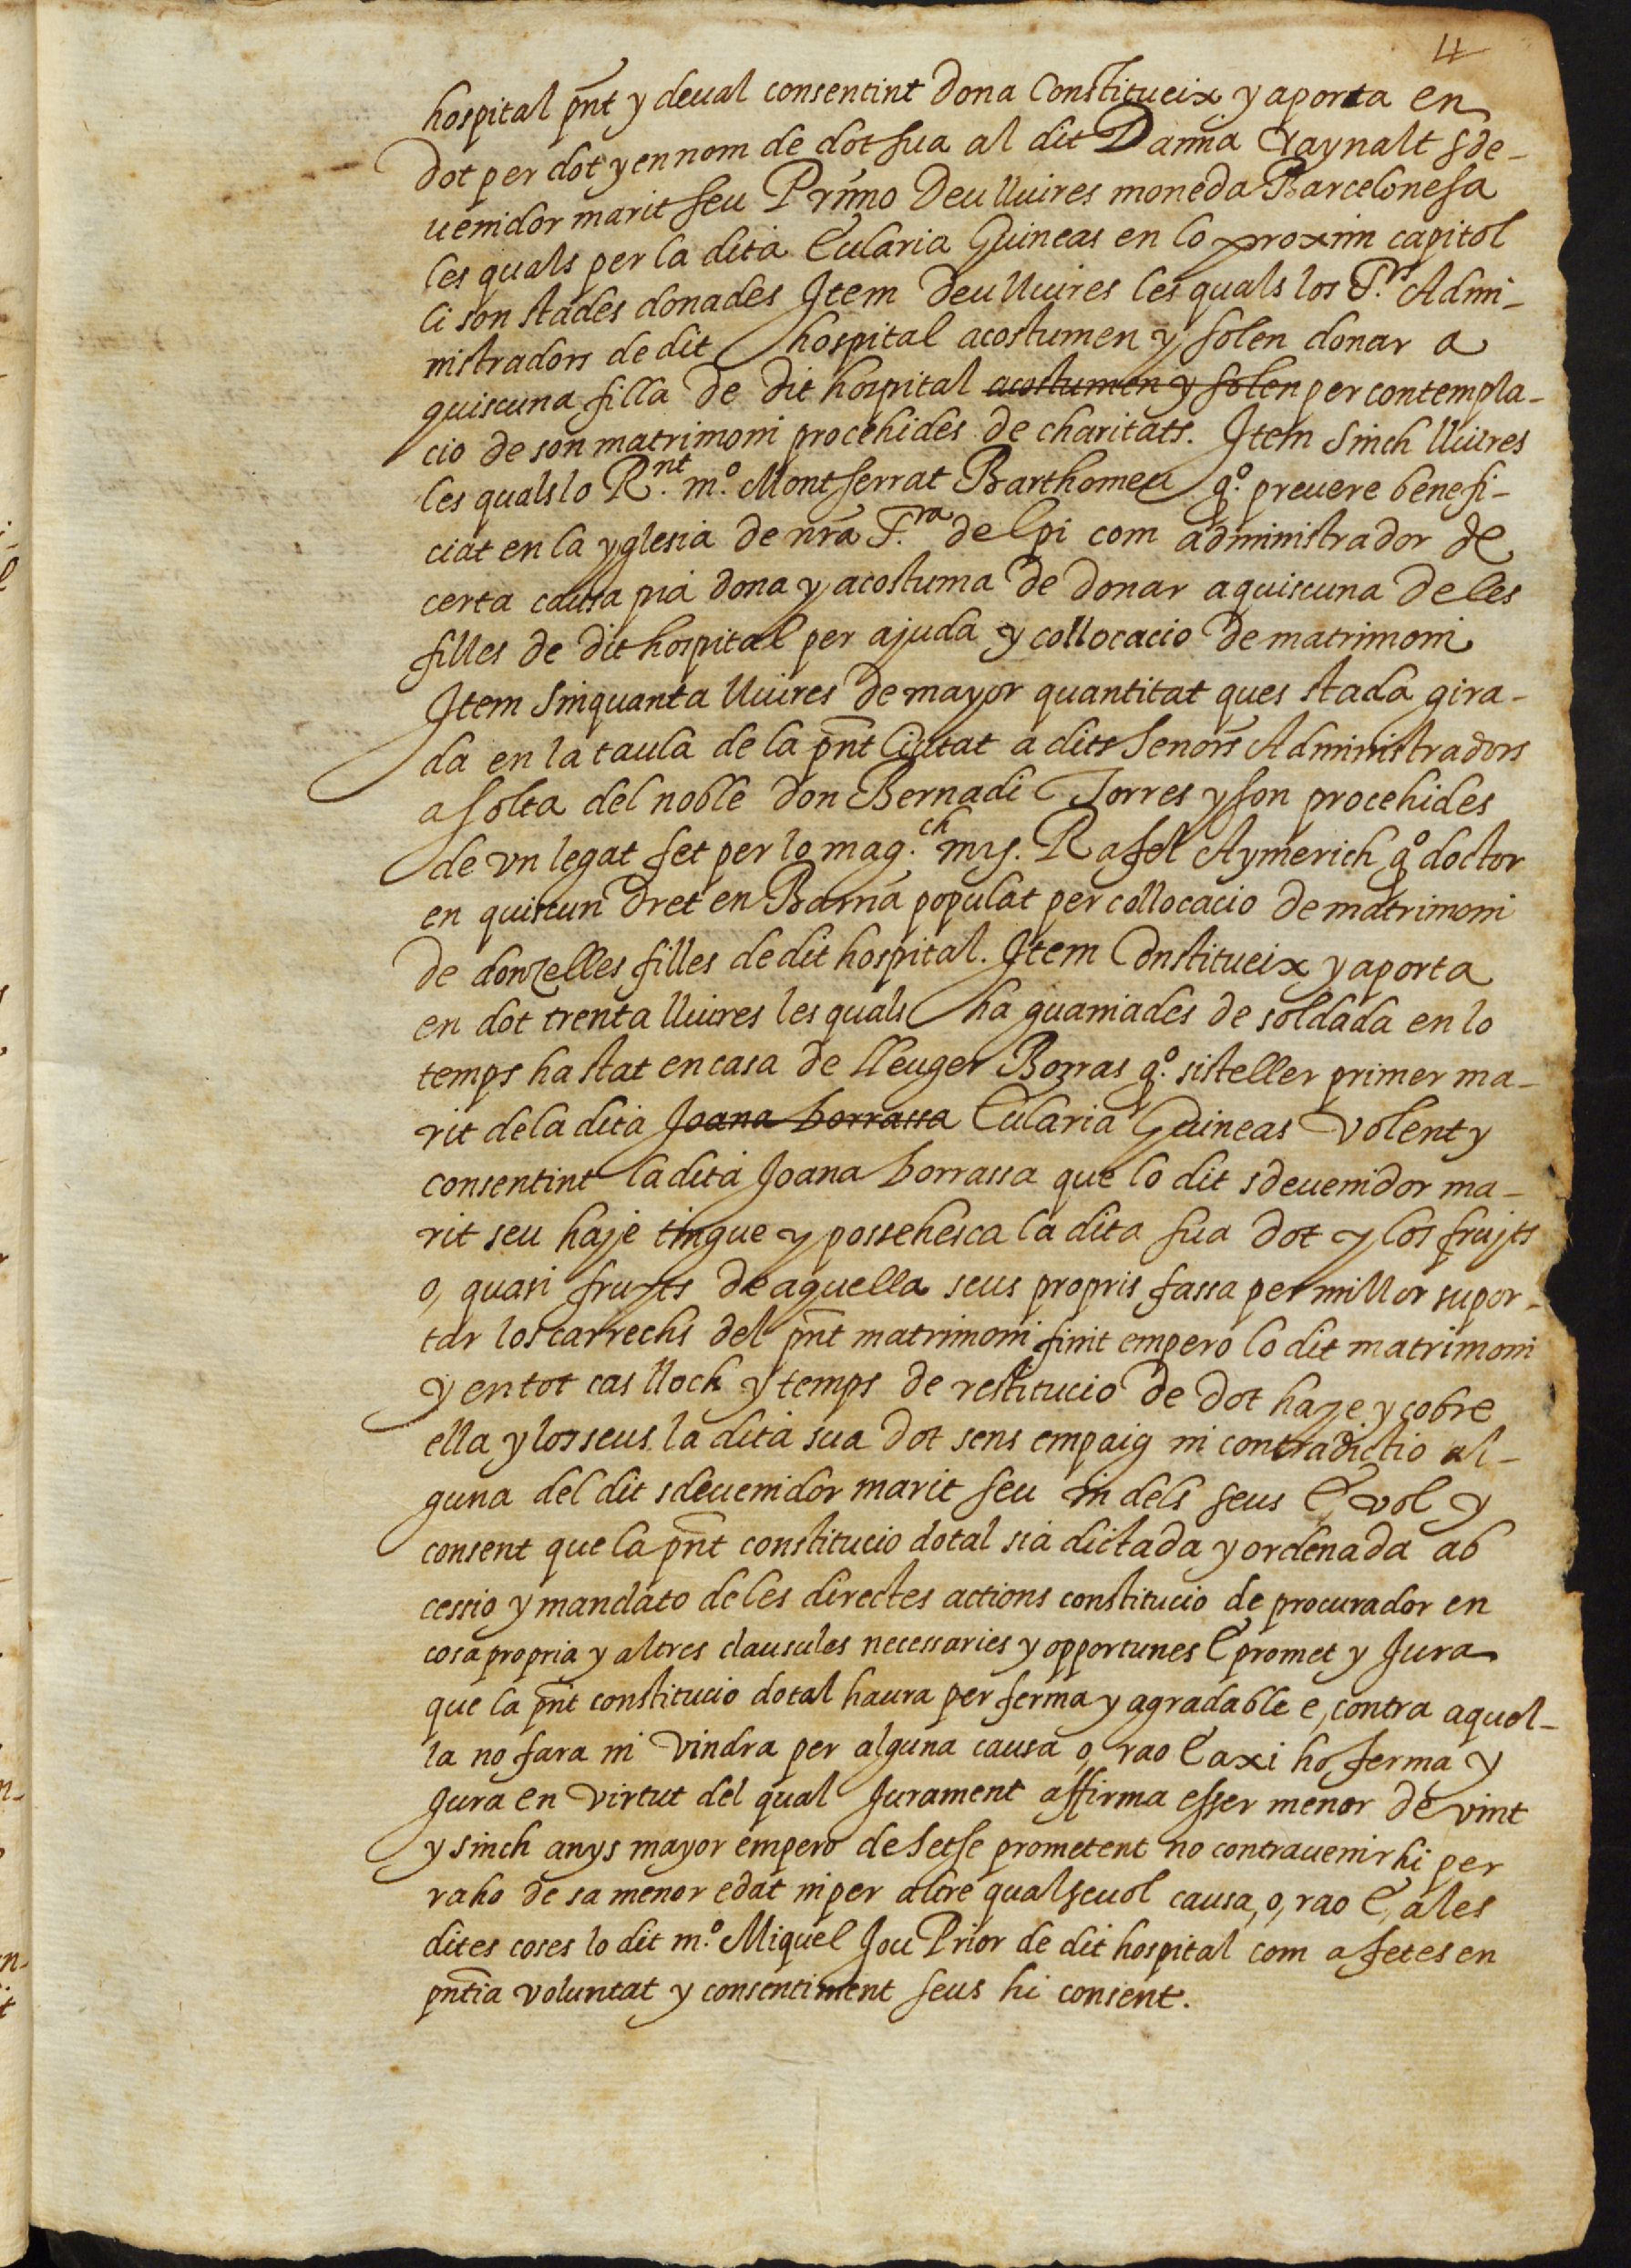 4
hospital pnt y deual consentint dona Constitueix y aporta en
dot per dot y en nom de dot sua al dit Damia Raynalt sde-
uenidor marit seu Primo Deu lliures moneda Barcelonesa
les quals per la dita Eularia Guineas en lo proxim capitol
li son stades donades Item deu lliures les quals los Srs. Admi-
nistradors de dit hospital acostumen y solen donar a
quiscuna filla de dit hospital acostumen y solen per contempla-
cio de son matrimoni procehides de charitats. Item Sinch lliures
les quals lo Rnt. mº. Montserrat Barthomeu qº. preuere benefi-
ciat en la yglesia de nra Sra. del pi com administrador de
certa causa pia dona y acostuma de donar a quiscuna de les
filles de dit hospital per ajuda y collocacio de matrimoni
Item Sinquanta lliures de mayor quantitat ques stada gira-
da en la taula de la pnt Ciutat a dits Senors Administradors
a solta del noble don Bernadi Torres y son procehides
de vn legat fet per lo magch. mys. Rafel Aymerich qº doctor
en quiscun dret en Barna populat per collocacio de matrimoni
de donzelles filles de dit hospital. Item Constitueix y aporta
en dot trenta lliures les quals ha guaniades de soldada en lo
temps ha stat en casa de lleuger Borras qº. sisteller primer ma-
rit de la dita Joana borrassa Eularia Guineas volent y
consentint la dita Joana borrassa que lo dit sdeuenidor ma-
rit seu haje tingue y possehesca la dita sua dot y los fruyts
o, quasi fruyts de aquella seus propris fassa per millor supor-
tar los carrechs del pnt matrimoni finit empero lo dit matrimoni
y en tot cas lloch y temps de restitucio de dot haje y cobre
ella y los seus la dita sua dot sens empaig ni contradictio al-
guna del dit sdeuenidor marit seu ni dels seus E, vol y
consent que la pnt constitucio dotal sia dictada y ordenada ab
cessio y mandato de les directes actions constitucio de procurador en
cosa propria y altres clausules necessaries y opportunes E promet y Jura
que la pnt constitucio dotal haura per ferma y agradable e, contra aquel-
la no fara ni vindra per alguna causa o, rao E axi ho ferma y
Jura en virtut del qual Jurament affirma esser menor de vint
y sinch anys mayor empero de setse prometent no contrauenir hi per
raho de sa menor edat ni per altre qualseuol causa, o, rao E, a les
dites coses lo dit mº. Miquel Jou Prior de dit hospital com a fetes en
pntia voluntat y consentiment seus hi consent.